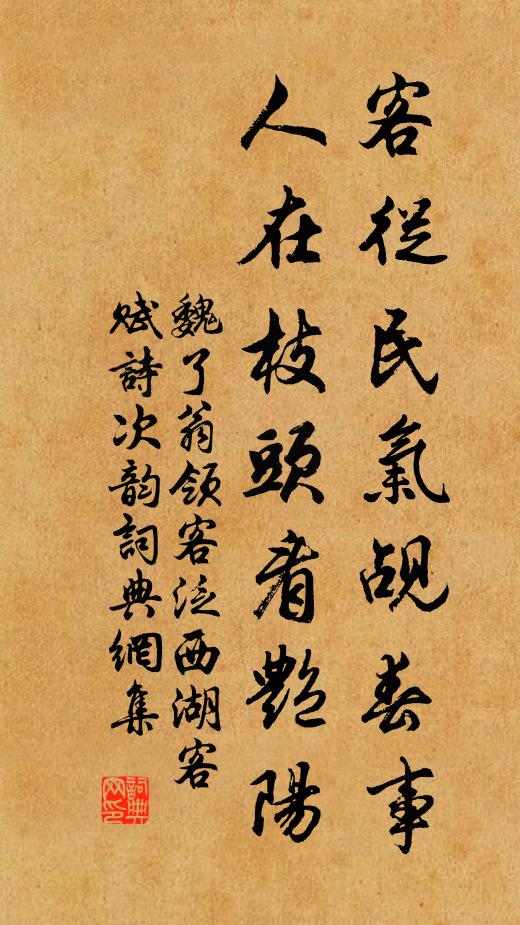 客從民氣覘春事
人在枝頭看艷陽
魏了翁領客泛西湖客
賦詩次韵詞典網集
詞典
网印